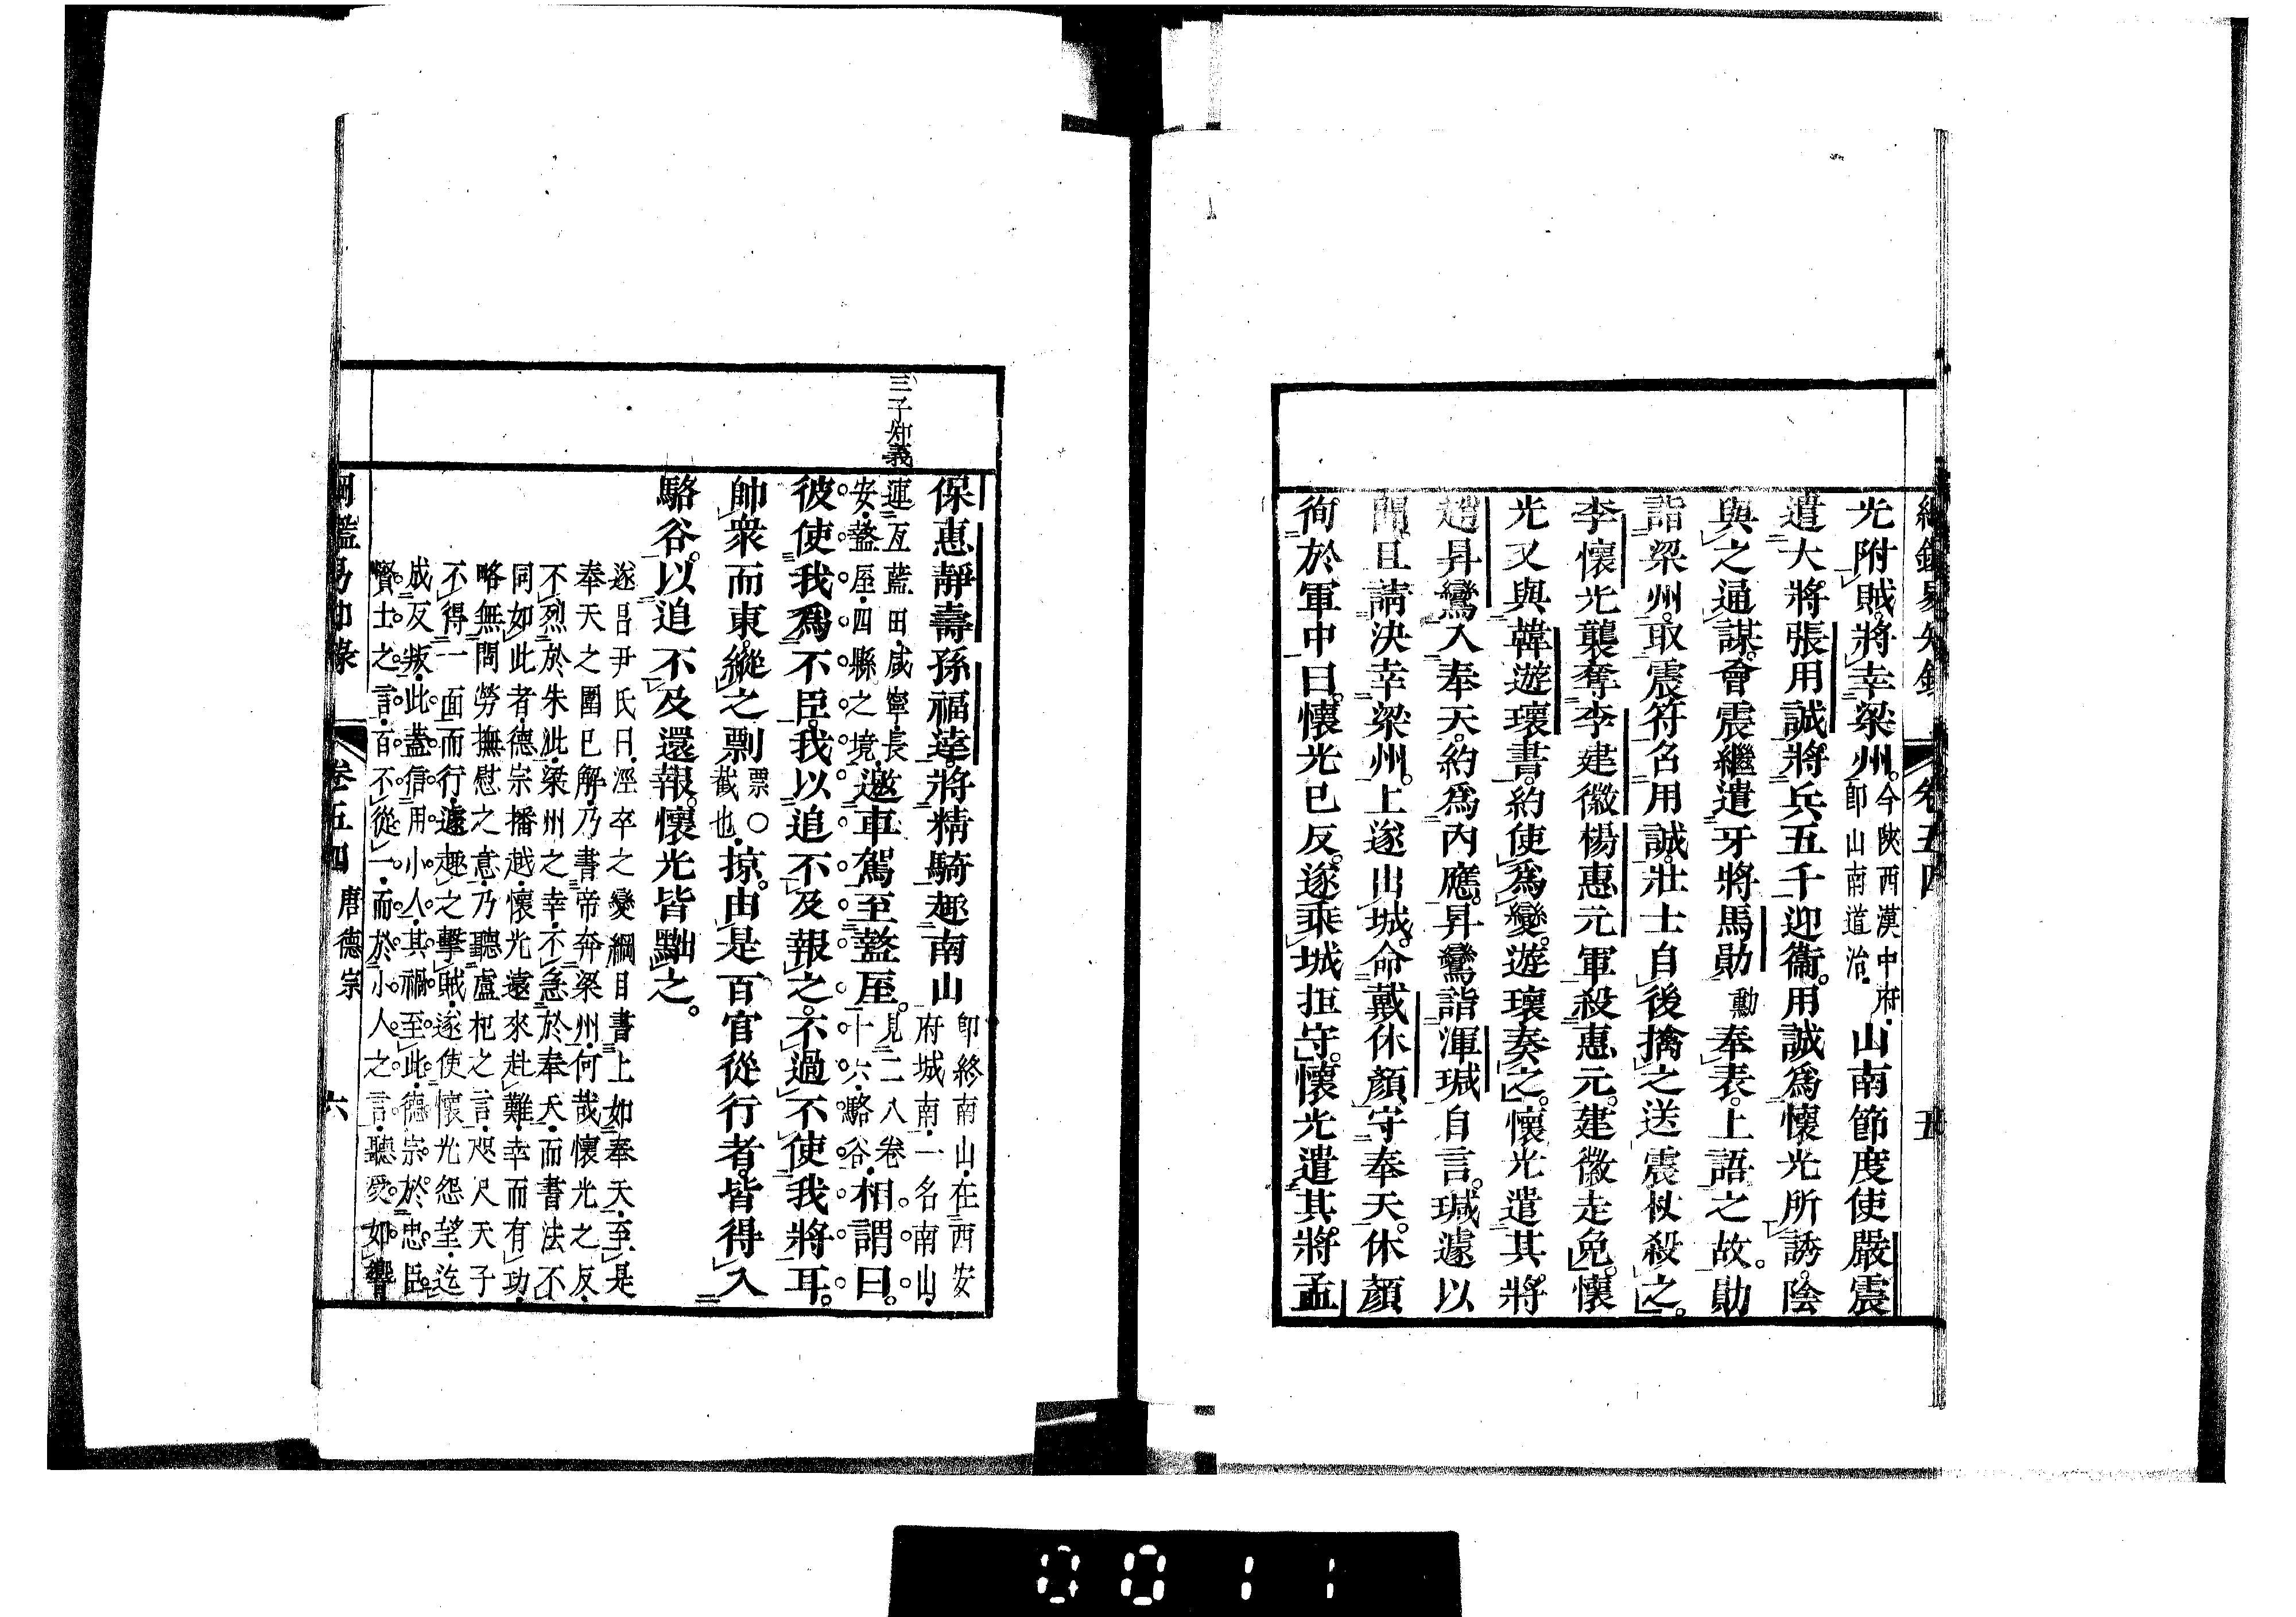 綱鑑易知錄 卷五四 五
光附賊將幸梁州。今陝西漢中府即山南道治山南節度使嚴震
遣大將張用誠將兵五千迎衞。用誠爲懷光所誘陰
與之通謀會震繼遣牙將馬勛勳奉表。上語之故。勛
詣梁州。取震符召用誠。壯士自後擒之送震杖殺之。
李懷光襲奪李建徽楊惠元軍殺惠元。建徽走免。懷
光又與韓遊瓌書。約使爲變。遊瓌奏之。懷光遣其將
趙昇鸞入奉天。約爲內應。昇鸞詣渾瑊自言。瑊遽以
聞且請決幸梁州。上遂出城。命戴休顏守奉天。休顏
徇於軍中曰。懷光已反。遂乘城拒守。懷光遣其將孟
三子知義
保惠靜壽孫福達。將精騎趣南山即終南山在西安府城南一名南山
連亙藍田咸寧長安盩厔四縣之境邀車駕至盩厔。見二八卷十六駱谷相謂曰。
彼使我爲不臣。我以追不及報之。不過不使我將耳。
帥衆而東。縱之剽票〇截也掠。由是百官從行者皆得入
駱谷。以追不及還報。懷光皆黜之。
遂昌尹氏曰涇卒之變綱目書上如奉天至是
奉天之圍已解乃書帝奔梁州何哉懷光之反
不烈於朱泚梁州之幸不急於奉天而書法不
同如此者德宗播越懷光遠來赴難幸而有功
略無問勞撫慰之意乃聽盧杞之言咫尺天子
不得一面而行遽趣之擊賊遂使懷光怨望迄
成反叛此蓋信用小人其禍至此德宗於忠臣
賢士之言百不從一而於小人之言聽受如響
綱鑑易知錄 卷五四 唐德宗 六
0011